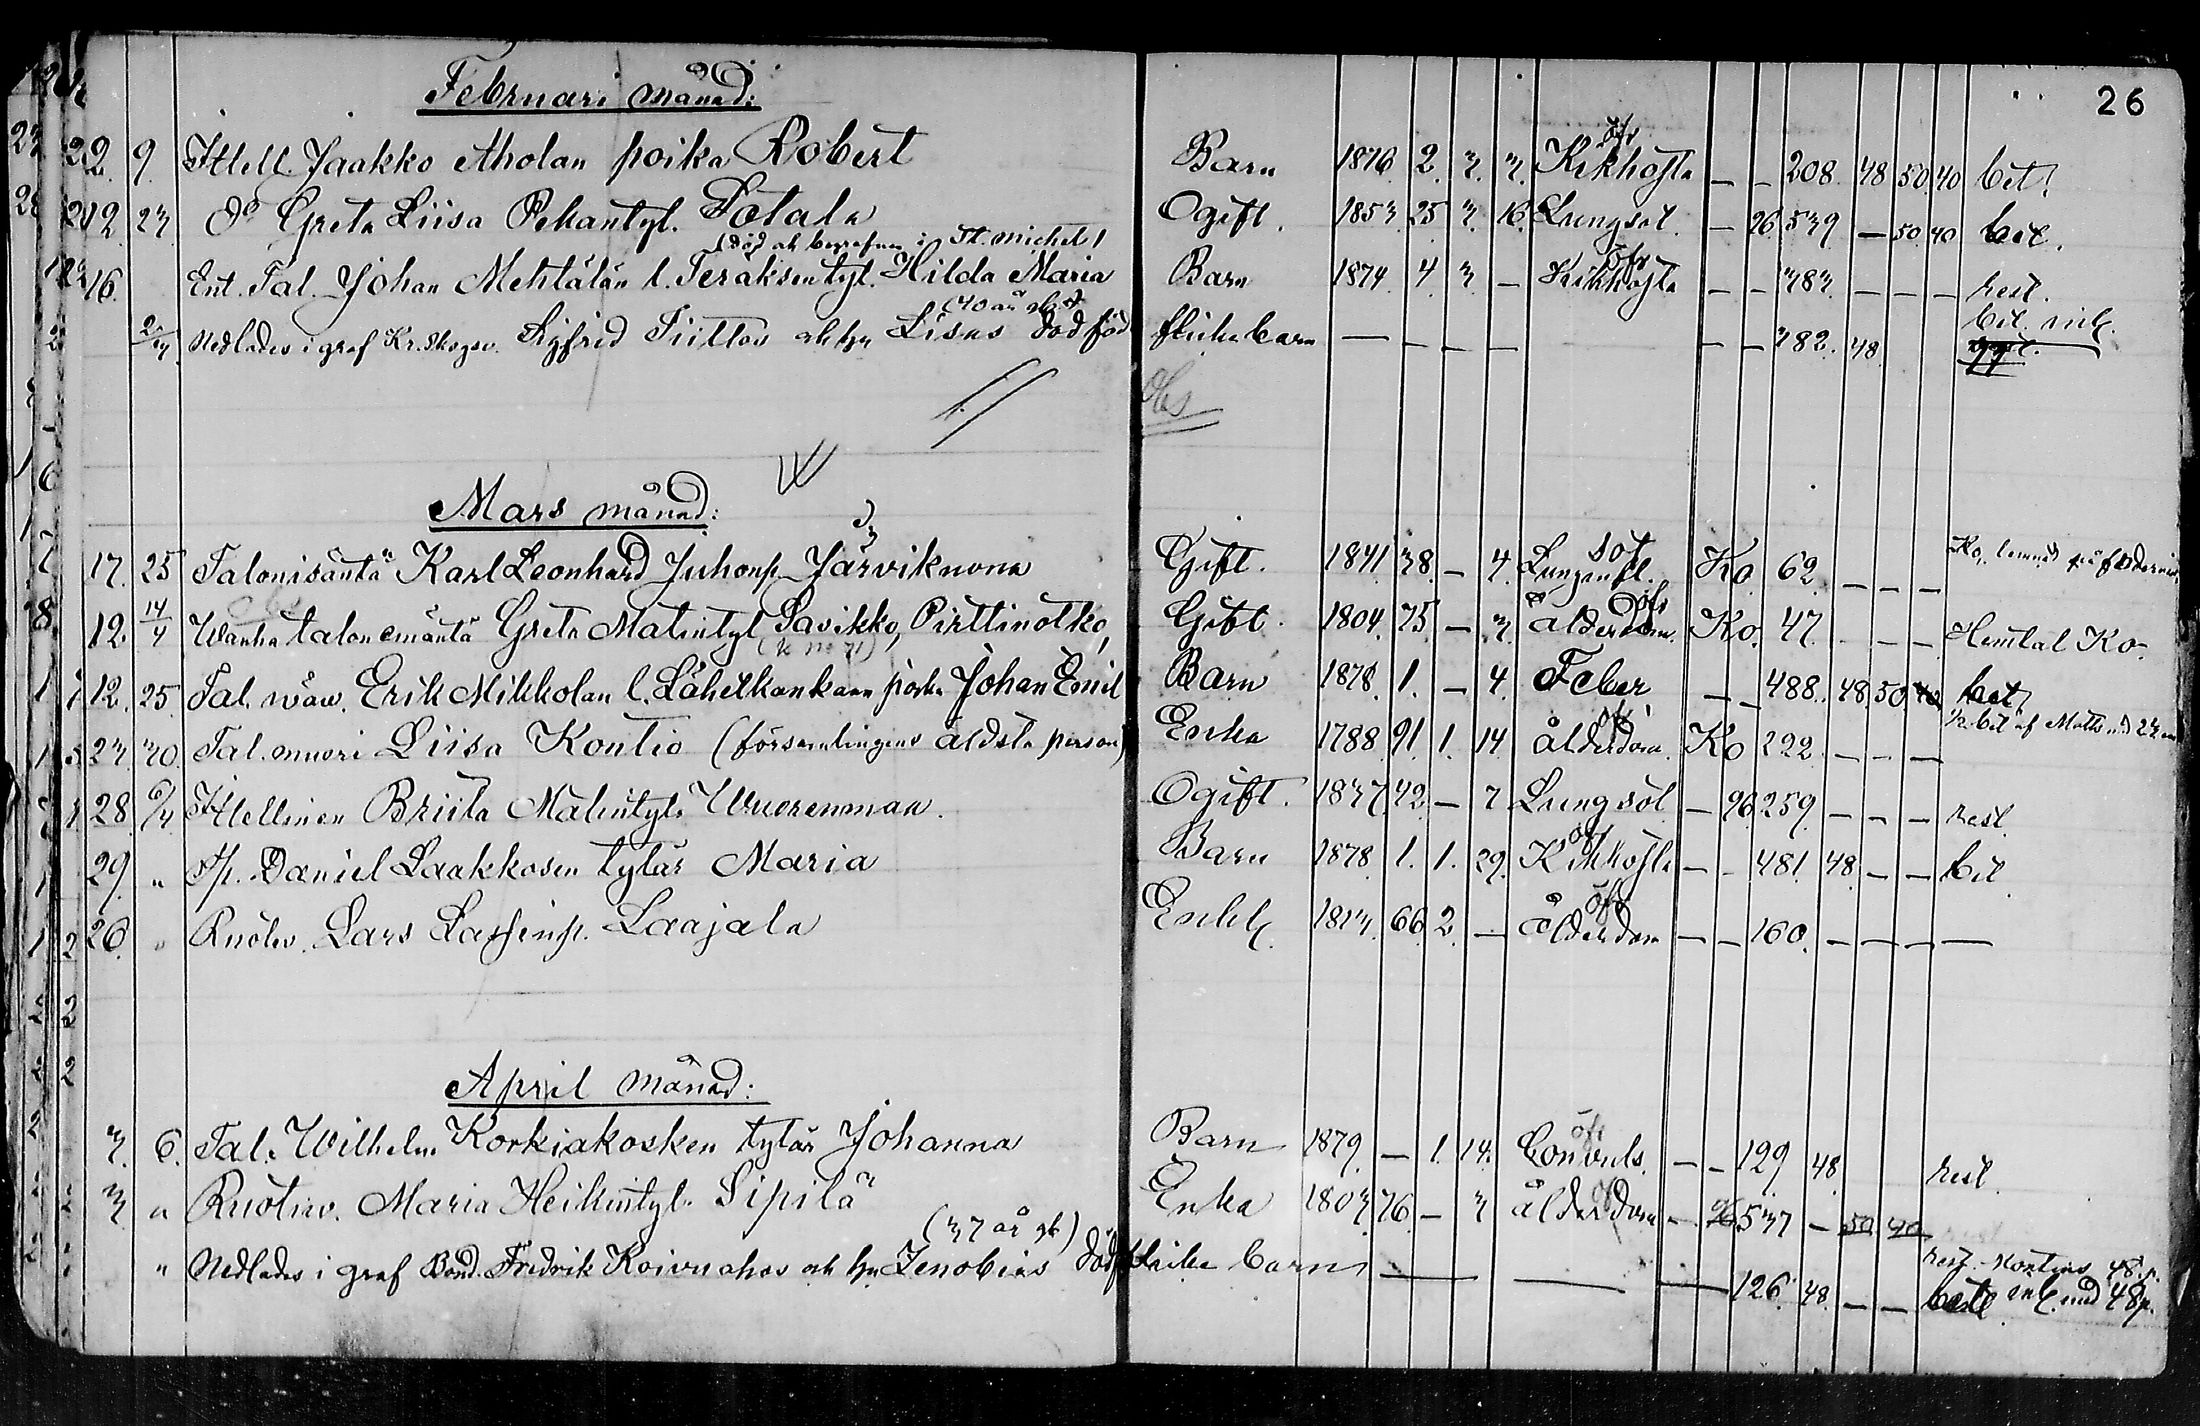 26
Februari månad:
22. 9. Itsell. Jaakko Aholan poika Robert Barn 1876. 2. 3. 3. Kikhosta öfv — — 208. 48 50 40 bet.
12. 23. Do Greta Liisa Pekantyt. Sotala Ogift. 1853. 25 3. 16. Lungsot. — 26. 539 — 50 40 bet.
(död och begrafven i St. Michel)
16. Ent. Tal. Johan Mehtälän l. Teräksen tyt. Hilda Maria Barn 1874. 4. 3. — Kikhosta öfv — — 383. — — — rest.
(40 år gl.)
Nedlades i graf Kr. Skogsv. Sigfrid Tiittos och hu Lisas dödföd flicke barn — — — — — — 382. 48. bet.
Obs
Mars månad:
17. 25 Talonisäntä Karl Leonhard Juhonp. Järvikuona Gift. 1841. 38. — 4. Lungsot Ko 62. — — — Ko,
12. 14/4 Wanha talon emäntä Greta Matintyt. Savikko, Pirttinotko, Gift. 1804. 75. — 3. ålderdom. öfv Ko. 47. — — — Hemtal Ko.
12. 25. Tal. wäw. Erik Mikkolan l. Lähetkankaan poika Johan Emil Barn 1878. 1. — 4. Feber — — 488. 48 50 40 bet.
23. 30. Tal. muori Liisa Kontio (församlingens äldsta person) Enka 1788. 91. 1. 14 ålderdom. öfv Ko 222. — — — 1/2 bet af Matts
28. 6/4 Itsellinen Briita Matintyt. Wuorenmaa. Ogift. 1837. 42. — 7 Lungsot — 26. 259. — — — rest.
29. " Sp. Daniel Laakkosen tytär Maria Barn 1878. 1. 1. 29. Kikhosta öfv — — 481. 48. — — bet.
26. " Ruotiv. Lars Lassinp. Laajala Enkl. 1813. 66. 2. — ålderdom öfv — — 160. — — — —
April månad:
3. 6. Tal. Wilhelm Korkiakosken tytär Johanna Barn 1879. — 1. 14. Convuls. öfv — — 129 48. rest.
3. " Ruotiw. Maria Heikintyt. Sipilä Enka 1803 76. — 3 ålderdom — 26 537 — 50 40
(37 år gl.)
" Nedlades i graf Bond. Fredrik Koivuahos och hu Zenobias dödf. flicke barn — — — 126. 48. — — rest. Kontins 48 p. med 48 p.